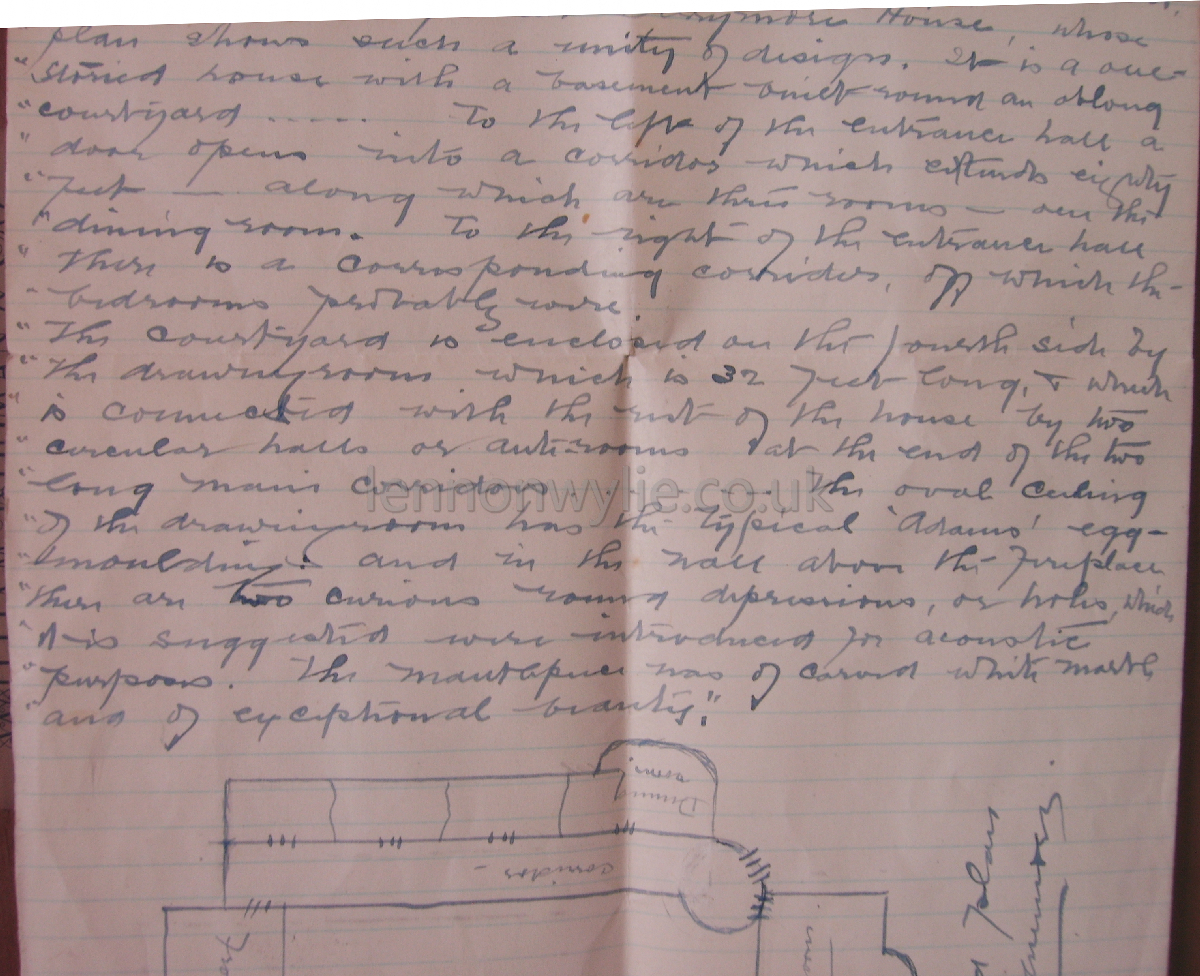 House, whose
plan shows such a unity of design. It is a one-
"storied house with a basement built round an oblong
"courtyard ...... To the left of the entrance hall a
" door opens into a corridor which extends eighty
"feet — along which are three rooms — one the
"dining room. To the right of the entrance hall
" there is a corresponding corridor, off which the
" bedrooms probably were
" The courtyard is enclosed on the fourth side by
" the drawingroom which is 32 feet long, & which
" is connected with the rest of the house by two
" circular halls or ante-rooms at the end of the two
"long main corridors. . . . . . The oval ceiling
"of the drawingroom has the typical 'Adams' egg-
"moulding: and in the wall above the fireplace
"there are two curious round depressions, or holes, which
"it is suggested were introduced for acoustic
"purposes. The mantlepiece was of carved white marble
"and of exceptional beauty."
lennonwylie.co.uk
Dining
room
corridor -
plan
memory